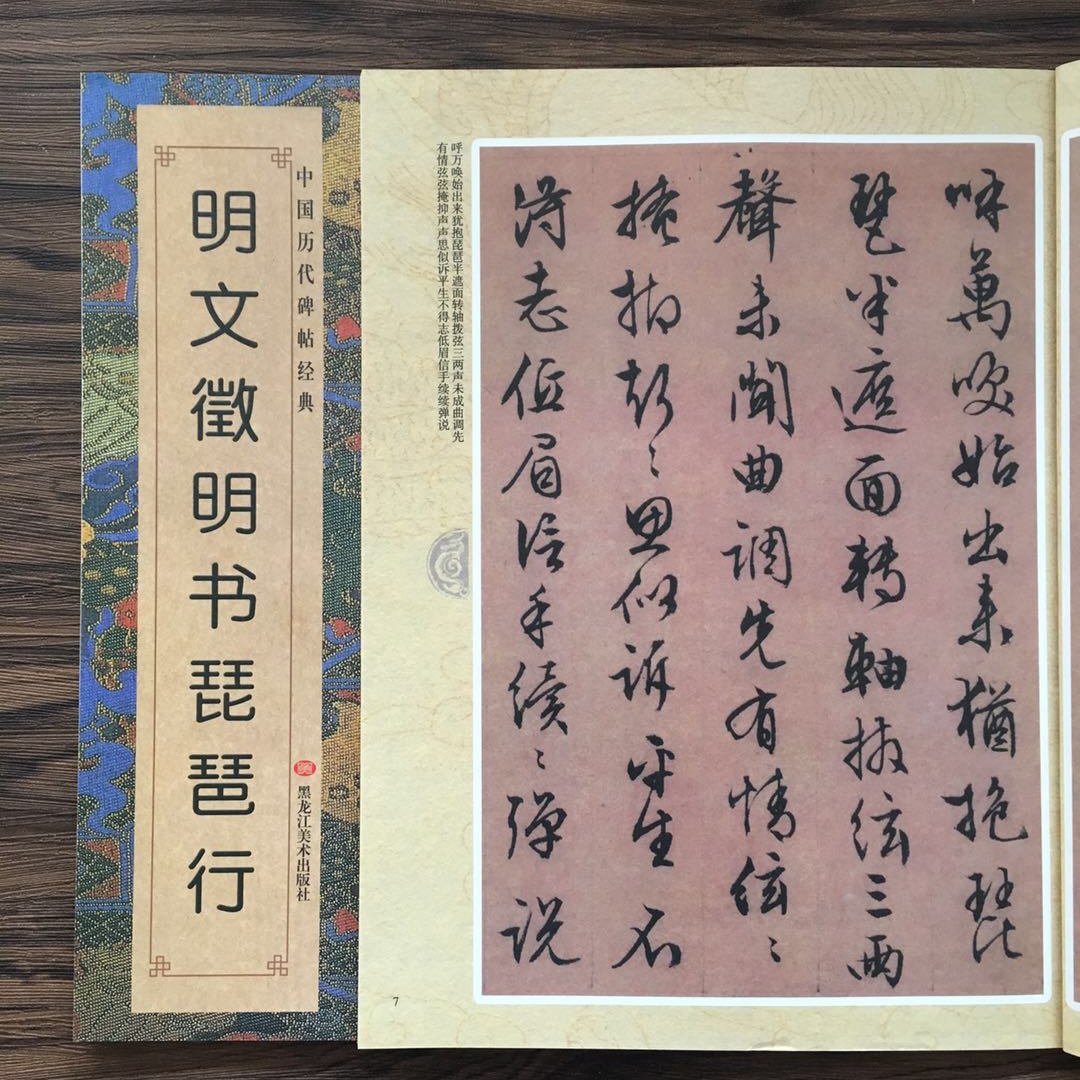 中国历代碑帖经典
明文徵明书琵琶行
黑龙江美术出版社
呼萬喚始出来猶抱琵
琶半遮面轉軸撥絃三兩
聲未聞曲調先有情絃〻
掩抑聲〻思似訴平生不
得志低眉信手續〻彈説
呼万唤始出来犹抱琵琶半遮面转轴拨弦三两声未成曲调先
有情弦弦掩抑声声思似诉平生不得志低眉信手续续弹说
7